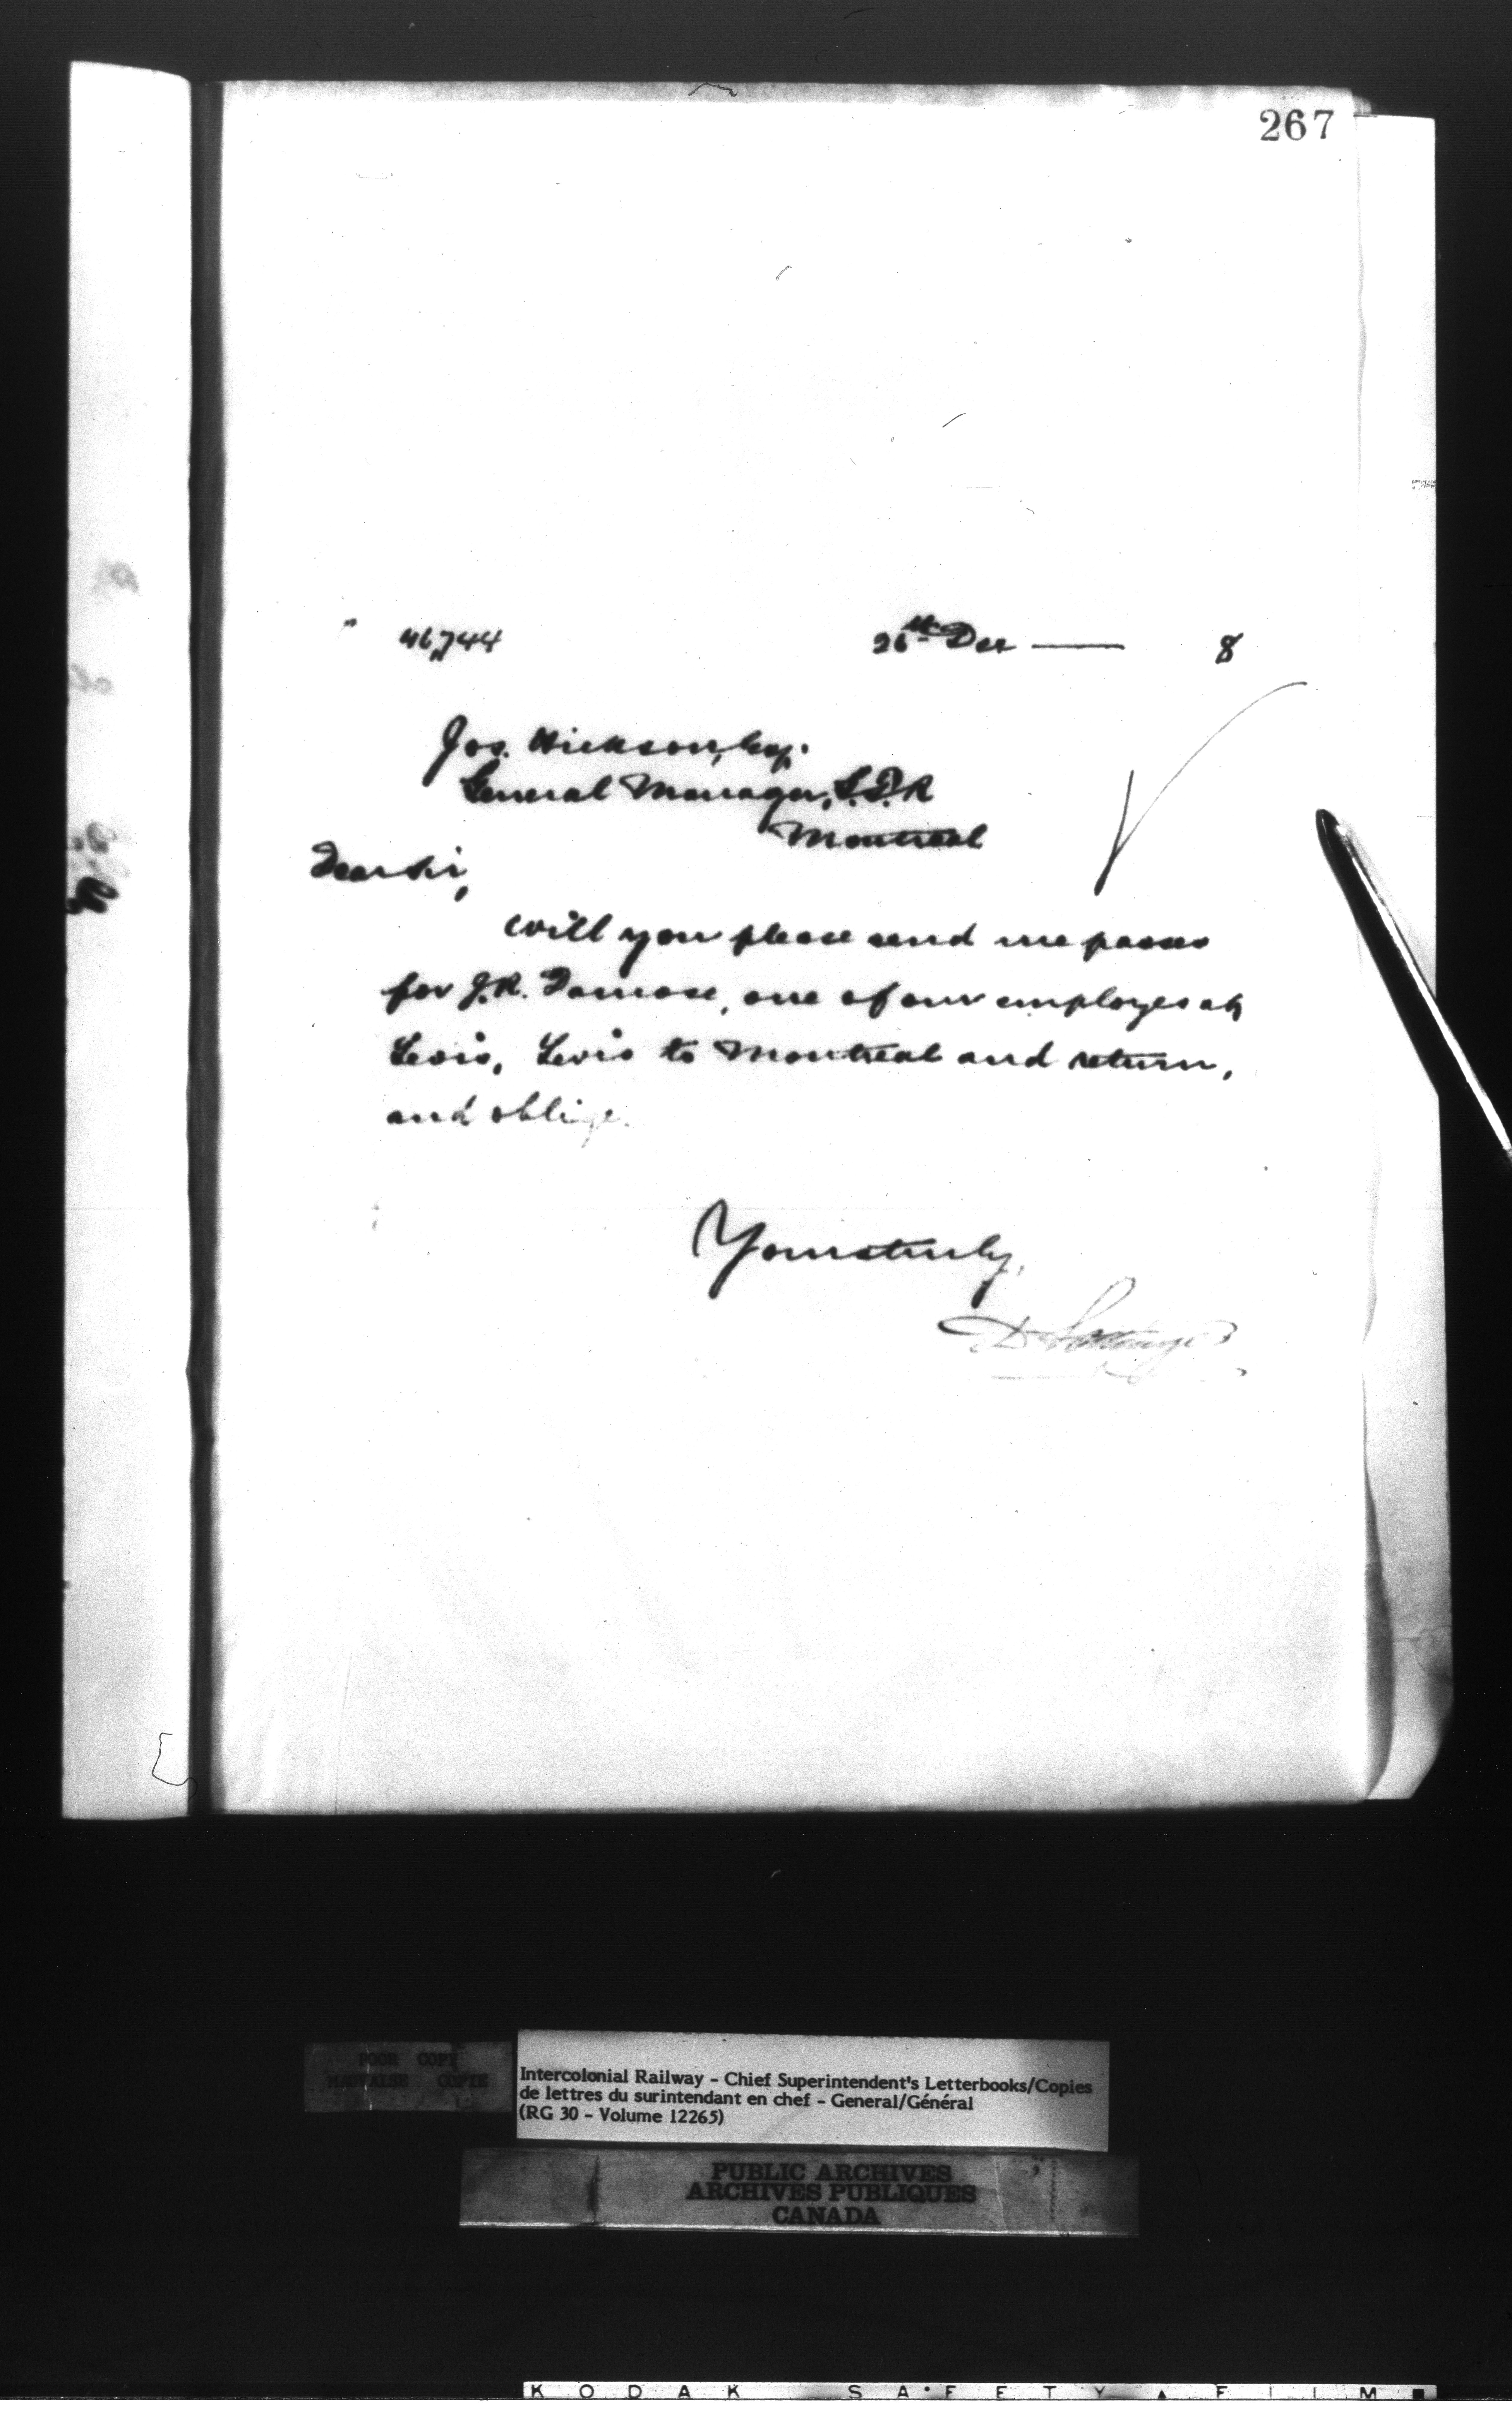 267
46,744 26th Dec — 8
Jos. Hickson, Esq.
General Manager, G.T.R
Montreal
Dear Sir,
Will you please send me passes
for J.R. Damase, one of our employes at
Levis, Levis to Montreal and return,
and oblige.
Yours truly,
D Pottinger
POOR COPY
MAUVAISE COPIE
Intercolonial Railway - Chief Superintendent's Letterbooks/Copies
de lettres du surintendant en chef - General/Général
(RG 30 - Volume 12265)
PUBLIC ARCHIVES
ARCHIVES PUBLIQUES
CANADA
KODAK SAFETY FILM